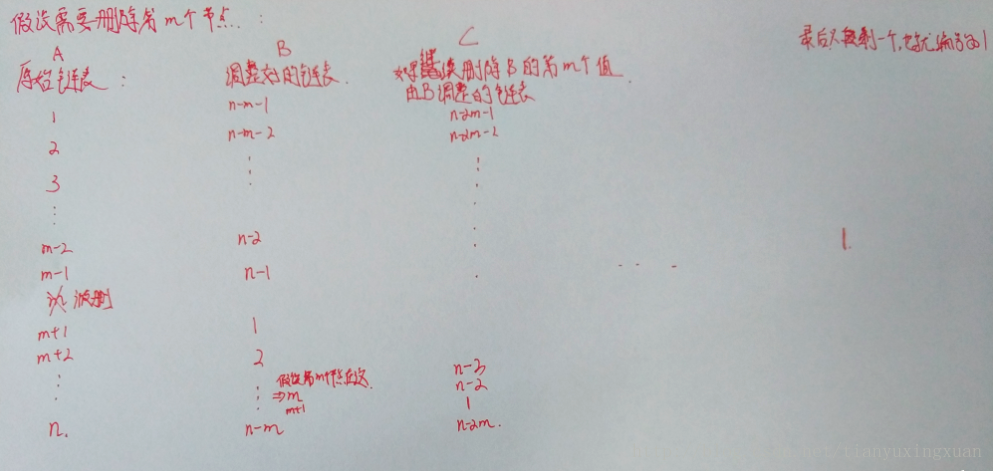 假设需要删除第m个节点. :
A B C 最后只剩一个,它就编号为1
原始链表: 调整好的链表. 如果继续删除B的第m个值
由B调整的链表
1 n-m-1 n-2m-1
2 n-m-2 n-2m-2
3
m-2 n-2
m-1 n-1 1
m 被删
m+1 1
m+2 2 n-3
假设第m个节点在这
⇒ m n-2
m+1 1
n. n-m n-2m.